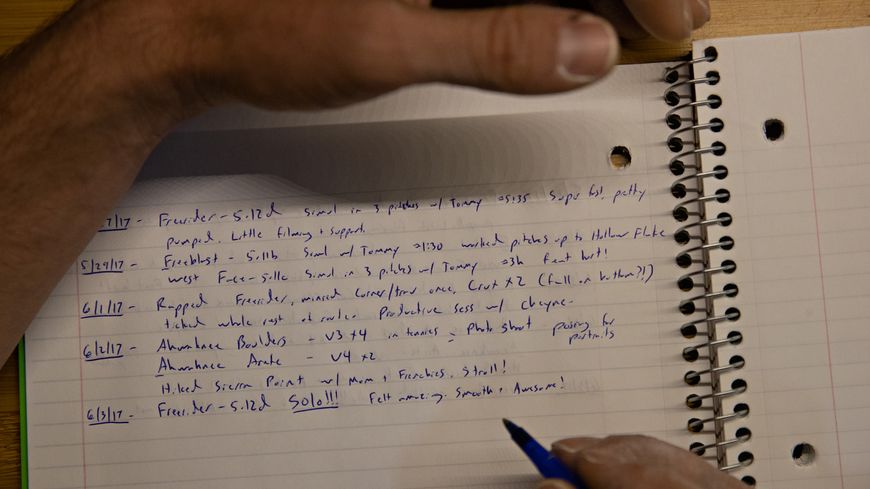 7/17 - Freerider - 5.12d Simul in 3 pitches w/ Tommy ≈5:35 Super fast, pretty
pumped. Little filming + support.
5/29/17 - Freeblast - 5.11b Simul w/ Tommy ≈1:30 worked pitches up to Hollow Flake
West Face - 5.11c Simul in 3 pitches w/ Tommy ≈3h feet hurt!
6/1/17 - Rapped Freerider, missed corner/trav once, Crux x2 (fall on bottom?!)
ticked whole rest of route. Productive sess w/ Cheyne.
6/2/17 - Ahwahnee Boulders - V3 x4 in tennies - Photo shoot posing for
portraits
Ahwahnee Arete - V4 x2
Hiked Sierra Point w/ Mom + Frenchies. Stroll!
6/3/17 - Freerider - 5.12d Solo!!! Felt amazing. Smooth + Awesome!